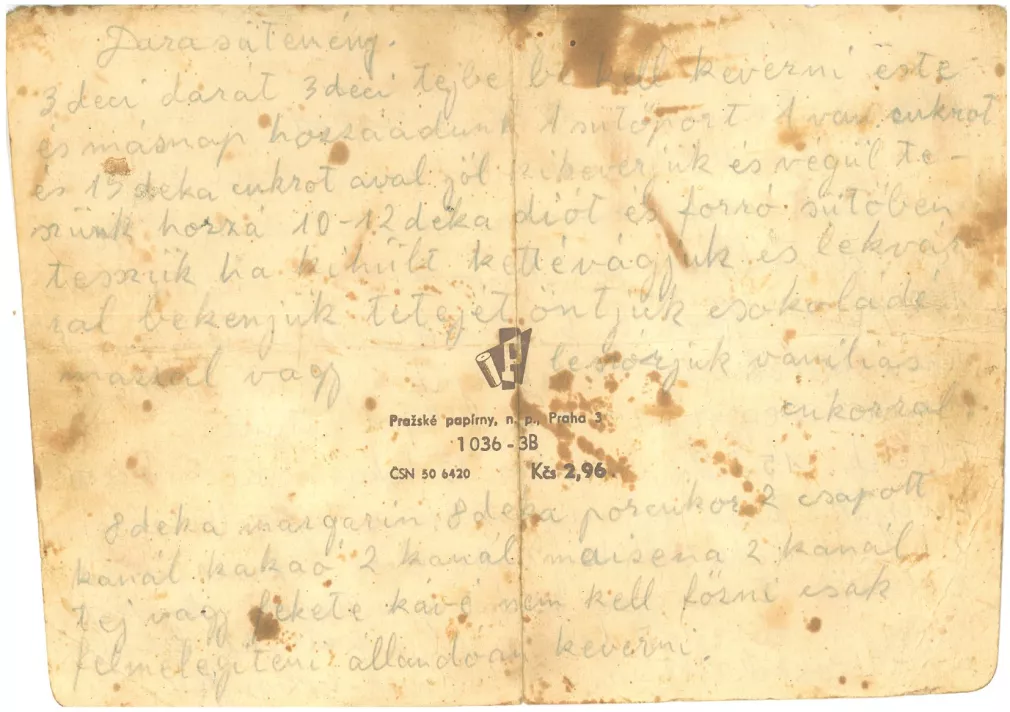 Darasütemény.
3 deci darát 3 deci tejbe be kell keverni este
és másnap hozzáadunk 1 sütőport 1 ván cukrot
és 15 deka cukrot aval jól kikeverjük és végül te-
szünk hozzá 10-12 deka diót és forró sütőben
tesszük ha kihült kettévágjuk és lekvár
ral bekenjük tetejét öntjük csokoládé
mázzal vagy leszórjuk vaniliás
cukorral
Pražské papírny, n. p., Praha 3
1036-3B
ČSN 50 6420 Kčs 2,96
8 deka margarin 8 deka porcukor 2 csapott
kanál kakaó 2 kanál maisena 2 kanál
tej vagy fekete kávé nem kell főzni csak
felmelegíteni állandóan keverni.